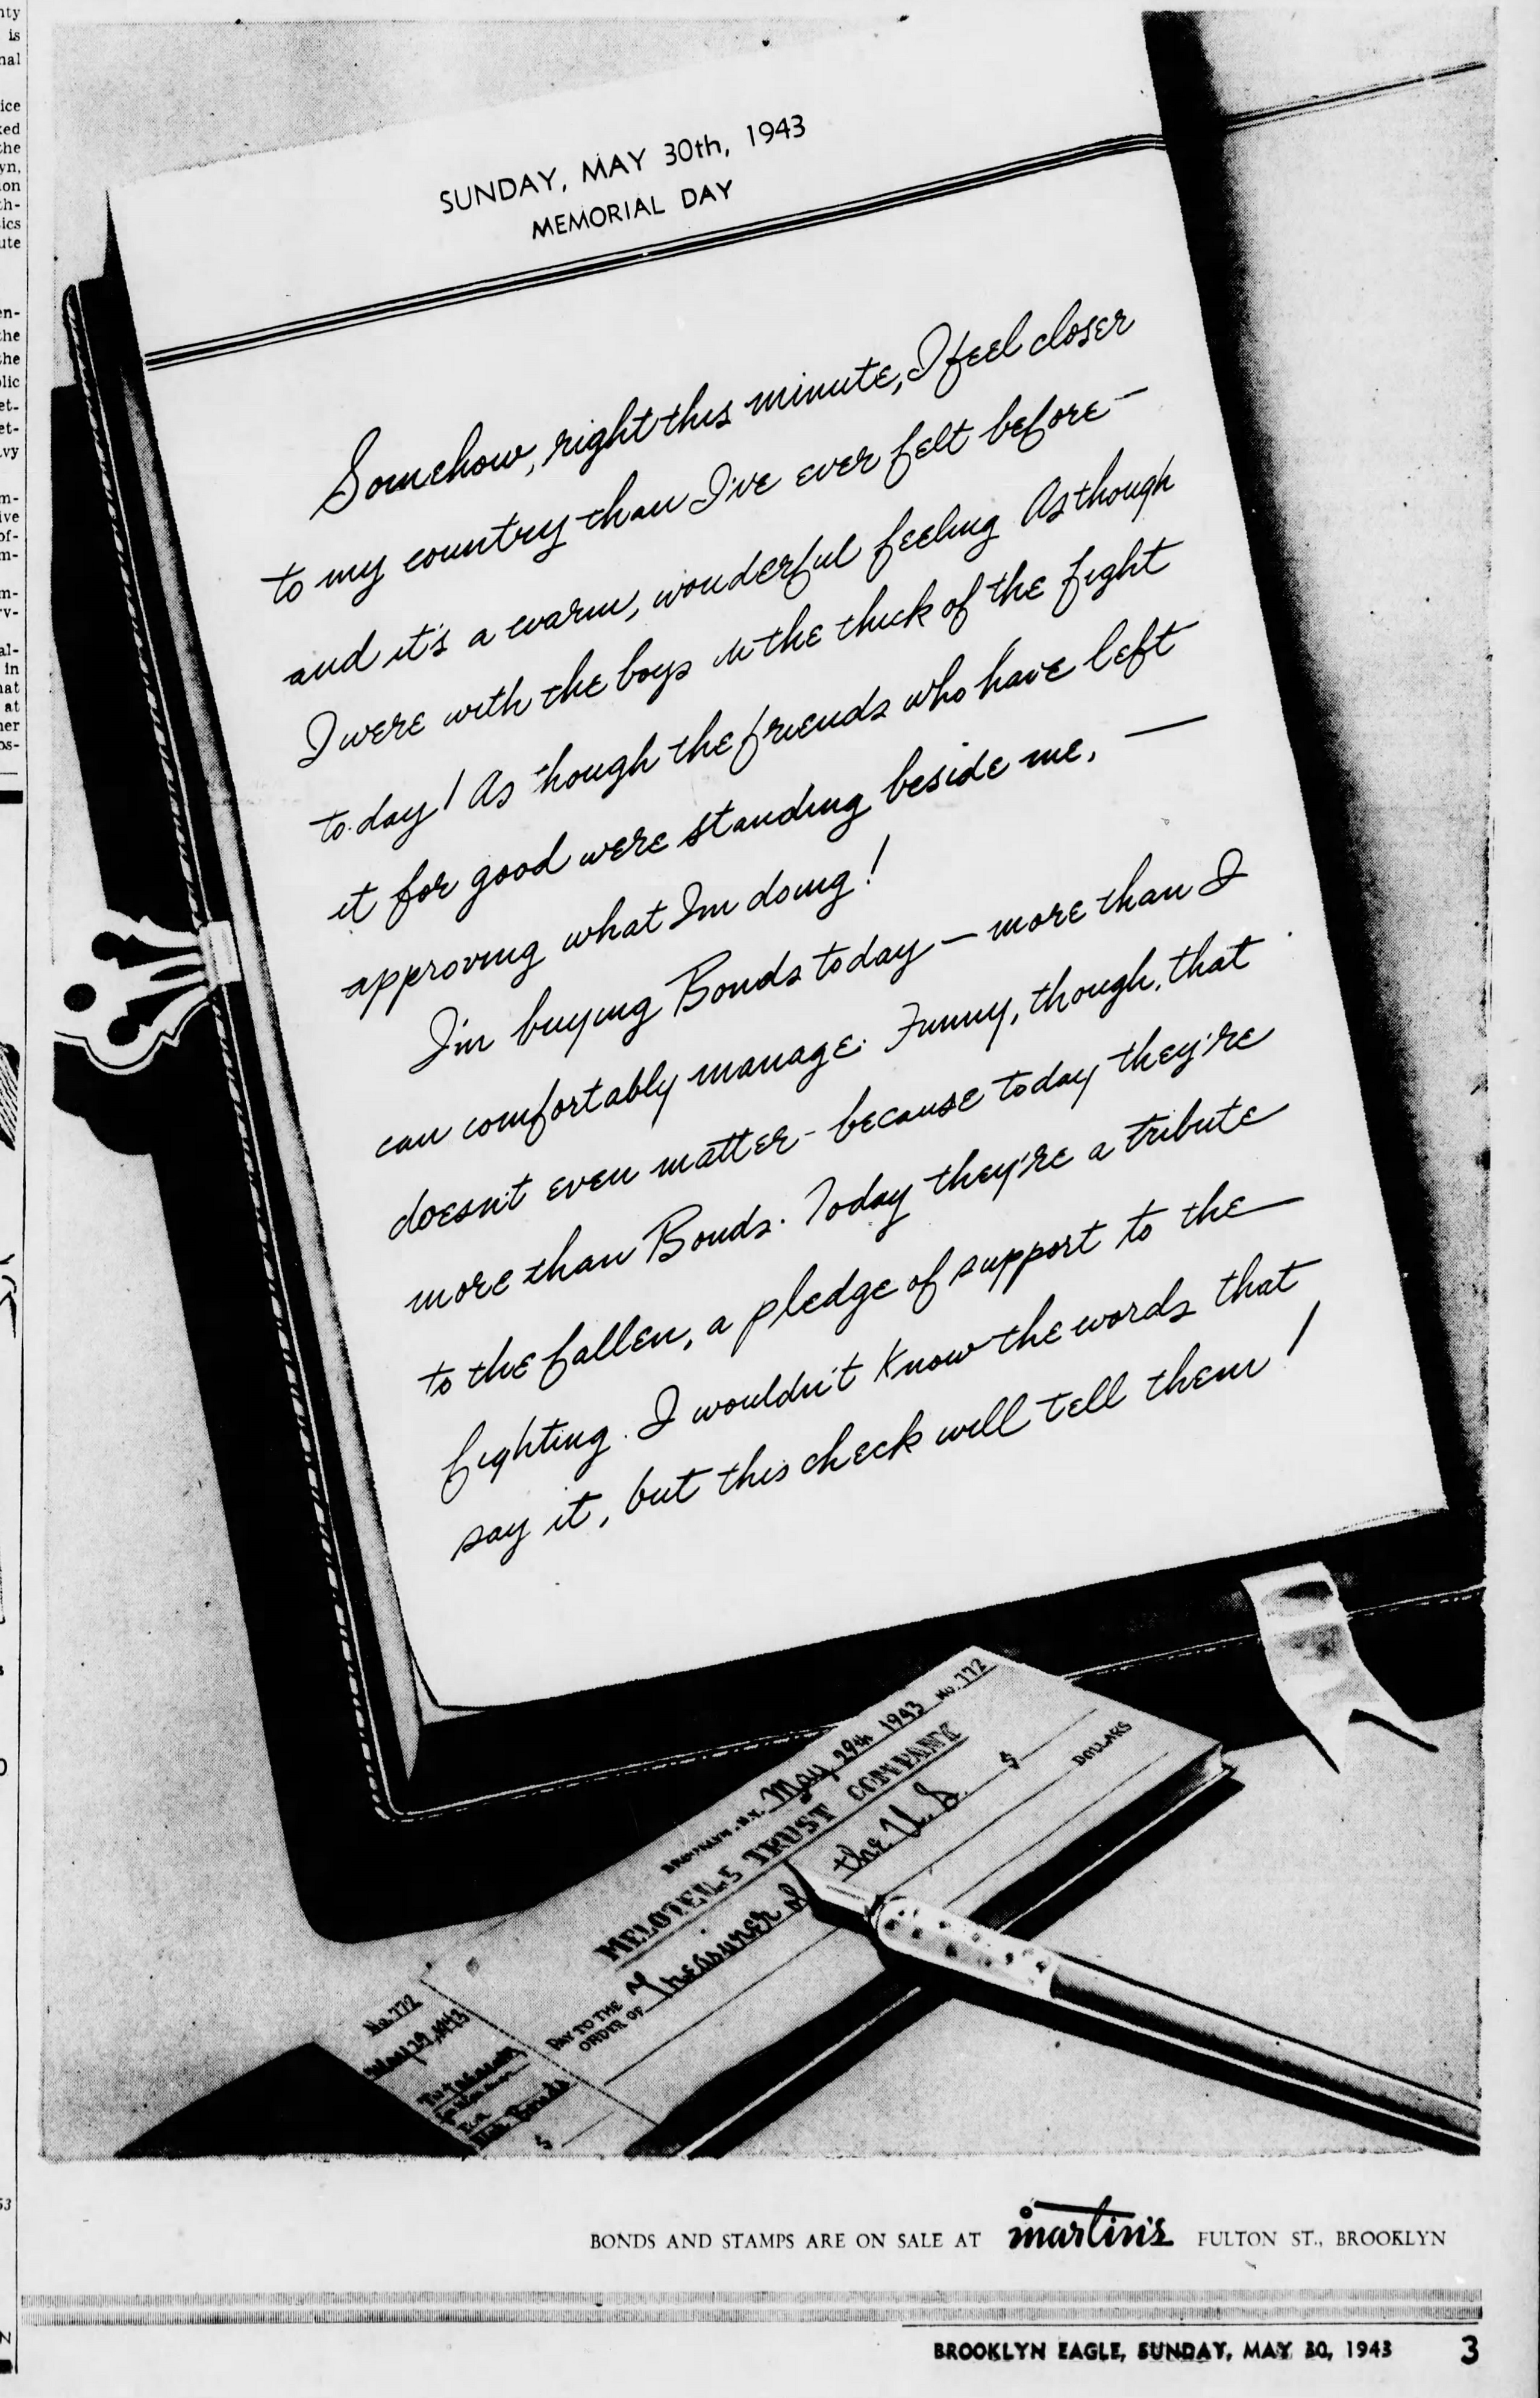 SUNDAY, MAY 30th, 1943
MEMORIAL DAY
Somehow, right this minute, I feel closer
to my country than I've ever felt before —
and it's a warm, wonderful feeling As though
I were with the boys in the thick of the fight
to-day! As though the friends who have left
it for good were standing beside me, —
approving what I'm doing!
I'm buying Bonds today — more than I
can comfortably manage. Funny, though, that
doesn't even matter - because today they're
more than Bonds. Today they're a tribute
to the fallen, a pledge of support to the
fighting. I wouldn't know the words that
say it, but this check will tell them!
BROOKLYN, N.Y. May 29th 1943 No. 772
TRUST COMPANY
PAY TO THE
ORDER OF Treasurer of the U.S. $
DOLLARS
No. 772
May 29, 1943
Bonds
$
BONDS AND STAMPS ARE ON SALE AT martin's FULTON ST., BROOKLYN
BROOKLYN EAGLE, SUNDAY, MAY 30, 1943 3
nty
is
nal
ice
ked
the
yn,
ion
th-
ics
ute
en-
the
the
blic
et-
et-
vy
m-
ive
of-
m-
m-
rv-
al-
in
hat
at
her
os-
53
N